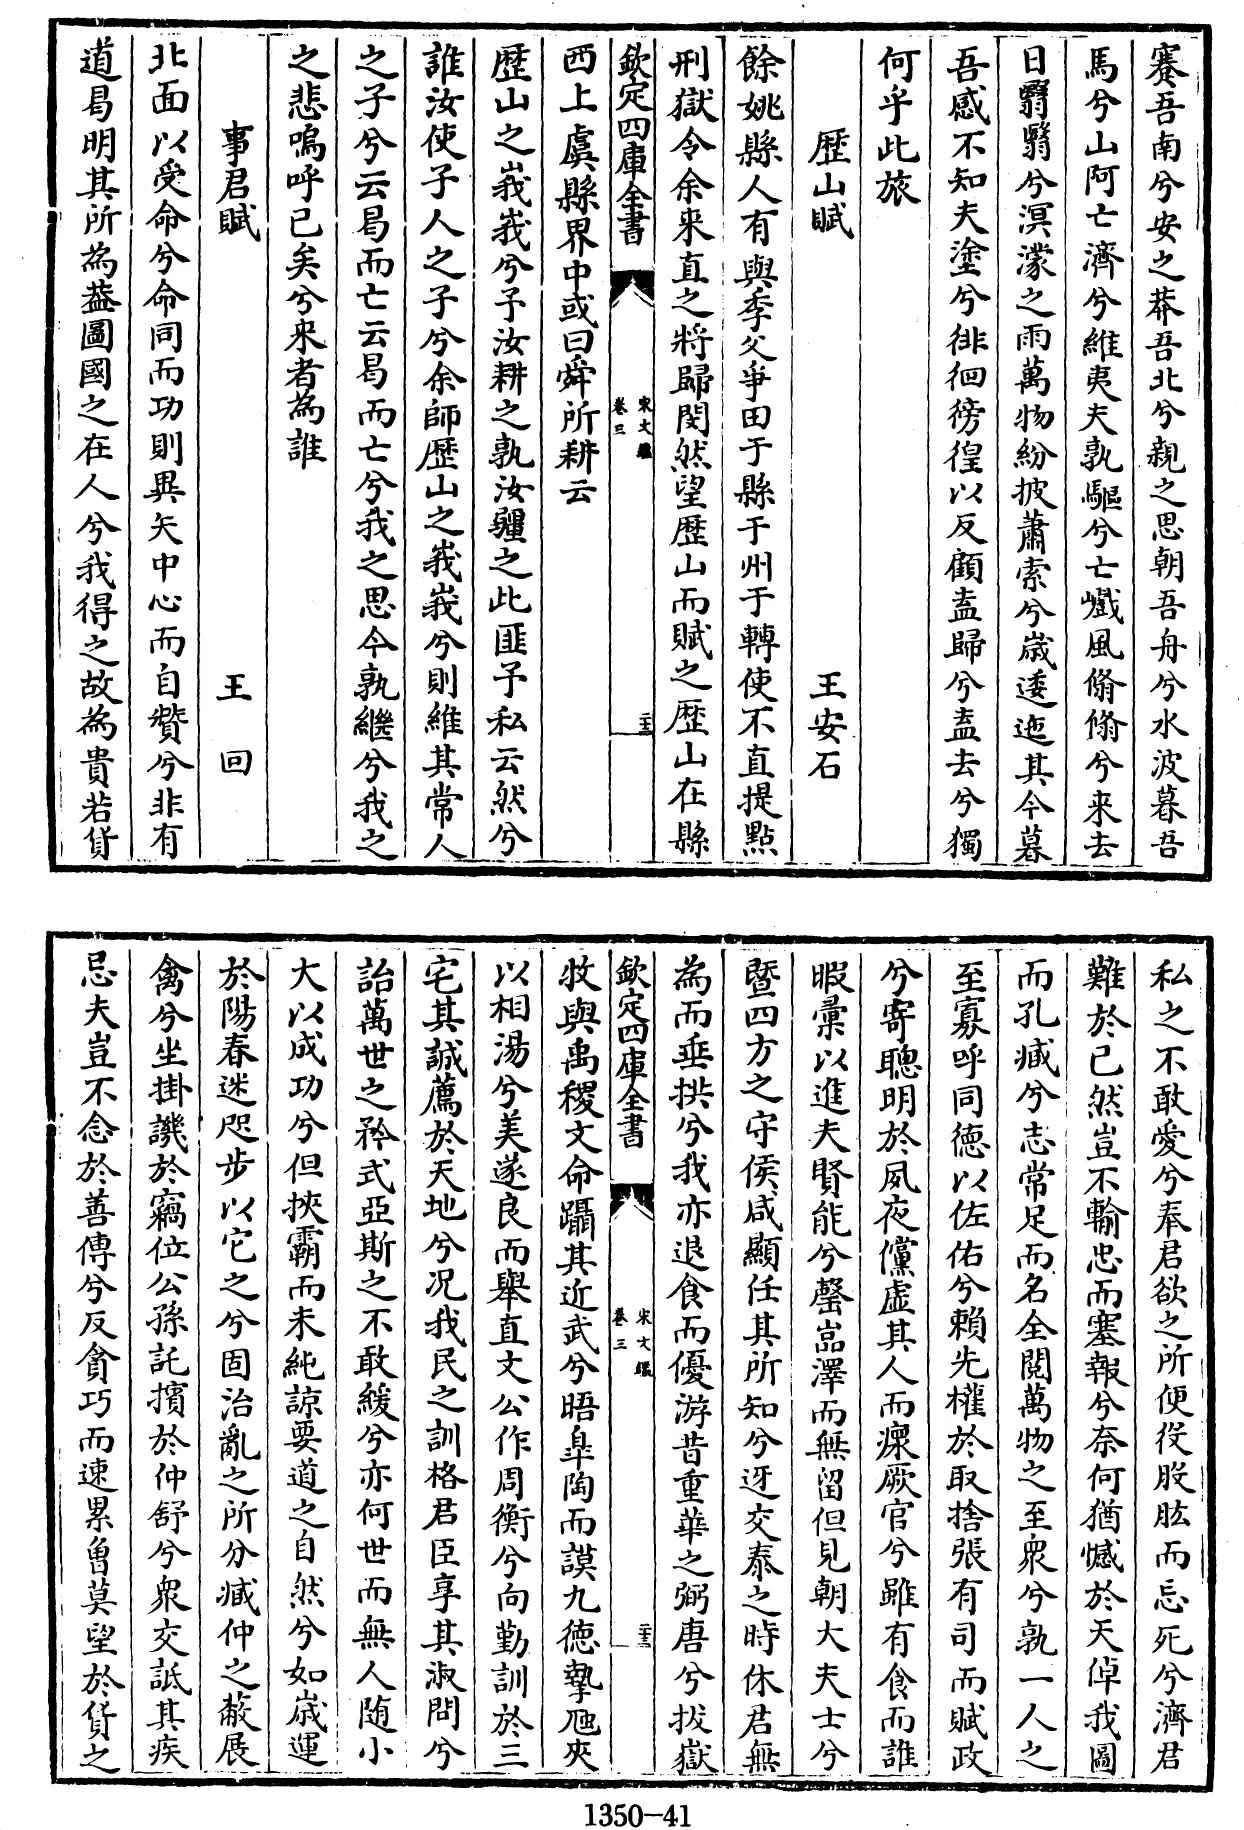 賽吾南兮安之莽吾北兮親之思朝吾舟兮水波暮吾
馬兮山阿亡濟兮維夷夫孰驅兮亡巇風翛翛兮來去
日翳翳兮溟濛之雨萬物紛披蕭索兮歳逶迤其今暮
吾感不知夫塗兮徘徊徬徨以反顧盍歸兮盍去兮獨
何乎此旅
歴山賦 王安石
餘姚縣人有與季父爭田于縣于州于轉使不直提點
刑獄令余來直之將歸閔然望歴山而賦之歴山在縣
欽定四庫全書 宋文鑑 卷三 二十二
西上虞縣界中或曰舜所耕云
歴山之峩峩兮予汝耕之孰汝疆之此匪予私云然兮
誰汝使子人之子兮余師歴山之峩峩兮則維其常人
之子兮云曷而亡云曷而亡兮我之思今孰繼兮我之
之悲嗚呼已矣兮來者為誰
事君賦 王回
北面以受命兮命同而功則異矢中心而自贊兮非有
道曷明其所為葢圖國之在人兮我得之故為貴若貨
私之不敢愛兮奉君欲之所便役股肱而忘死兮濟君
難於已然豈不輸忠而塞報兮奈何猶憾於天倬我圖
而孔臧兮志常足而名全閲萬物之至衆兮孰一人之
至寡呼同德以佐佑兮賴先權於取捨張有司而賦政
兮寄聰明於夙夜儻虚其人而瘝厥官兮雖有食而誰
暇彚以進夫賢能兮罄嵓澤而無留但見朝大夫士兮
暨四方之守侯咸顯任其所知兮迓交泰之時休君無
為而垂拱兮我亦退食而優游昔重華之弼唐兮拔嶽
欽定四庫全書 宋文鑑 卷三 二十三
牧與禹稷文命躡其近武兮晤臯陶而謨九德摯虺夾
以相湯兮美遂良而舉直文公作周衡兮向勤訓於三
宅其誠薦於天地兮况我民之訓格君臣享其淑問兮
詒萬世之矜式亞斯之不敢緩兮亦何世而無人随小
大以成功兮但挾霸而未純諒要道之自然兮如歳運
於陽春迷咫步以它之兮固治亂之所分臧仲之蔽展
禽兮坐掛譏於竊位公孫託擯於仲舒兮衆交詆其疾
忌夫豈不念於善傳兮反貪巧而速累魯莫望於貨之
1350-41